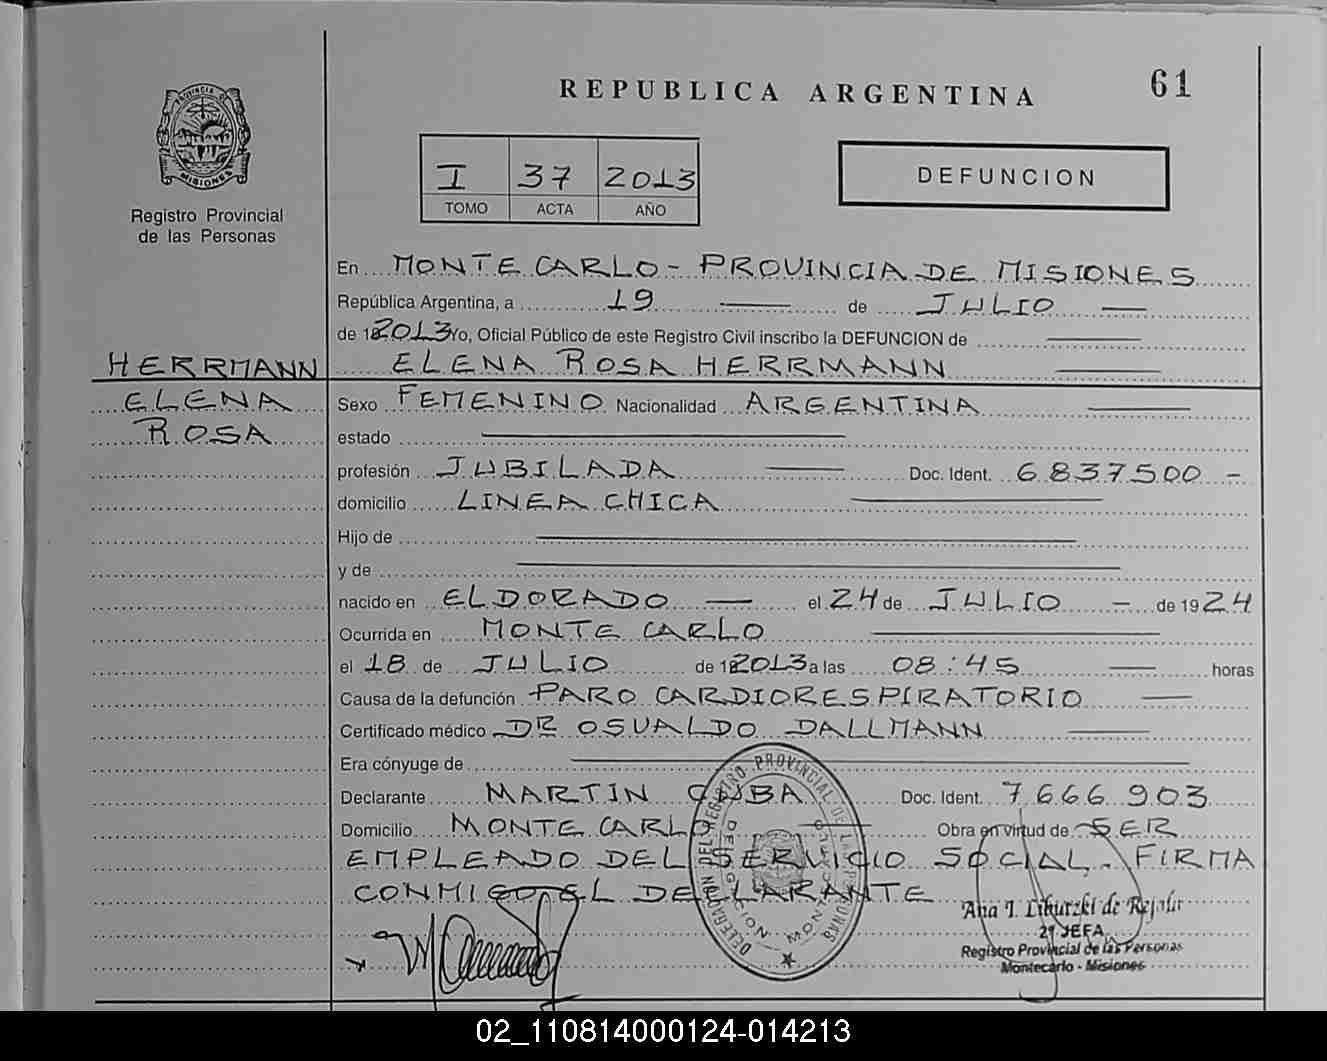 REPUBLICA ARGENTINA
61
PROVINCIA DE
MISIONES
Registro Provincial
de las Personas
I 37 2013
TOMO ACTA AÑO
DEFUNCION
En MONTE CARLO - PROVINCIA DE MISIONES
República Argentina, a 19 de JULIO
de 2013 Yo, Oficial Público de este Registro Civil inscribo la DEFUNCION de
HERRMANN
ELENA ROSA HERRMANN
ELENA
ROSA
Sexo FEMENINO Nacionalidad ARGENTINA
estado
profesión JUBILADA Doc. Ident. 6837500 -
domicilio LINEA CHICA
Hijo de
y de
nacido en ELDORADO el 24 de JULIO de 1924
Ocurrida en MONTE CARLO
el 18 de JULIO de 2013 a las 08:45 horas
Causa de la defunción PARO CARDIORESPIRATORIO
Certificado médico DR OSVALDO DALLMANN
Era cónyuge de
Declarante MARTIN CUBA Doc. Ident. 7666903
Domicilio MONTE CARLO Obra en virtud de SER
EMPLEADO DEL SERVICIO SOCIAL. FIRMA
CONMIGO EL DECLARANTE
DELEGACION DEL REGISTRO PROVINCIAL DE LAS PERSONAS
Ana I. de
2ª JEFA
Registro Provincial de las Personas
Montecarlo - Misiones
02_110814000124-014213